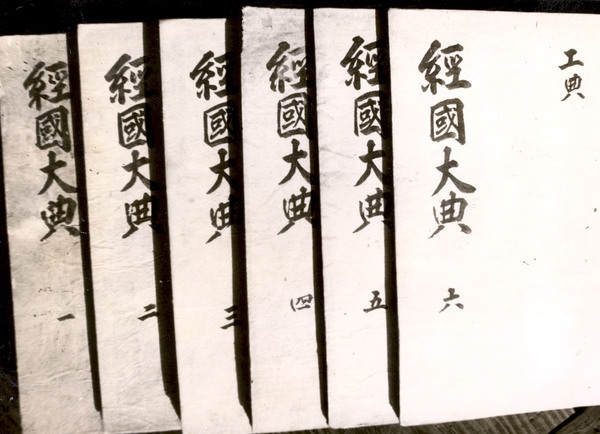 經國大典 一
經國大典 二
經國大典 三
經國大典 四
經國大典 五
經國大典 六
工典